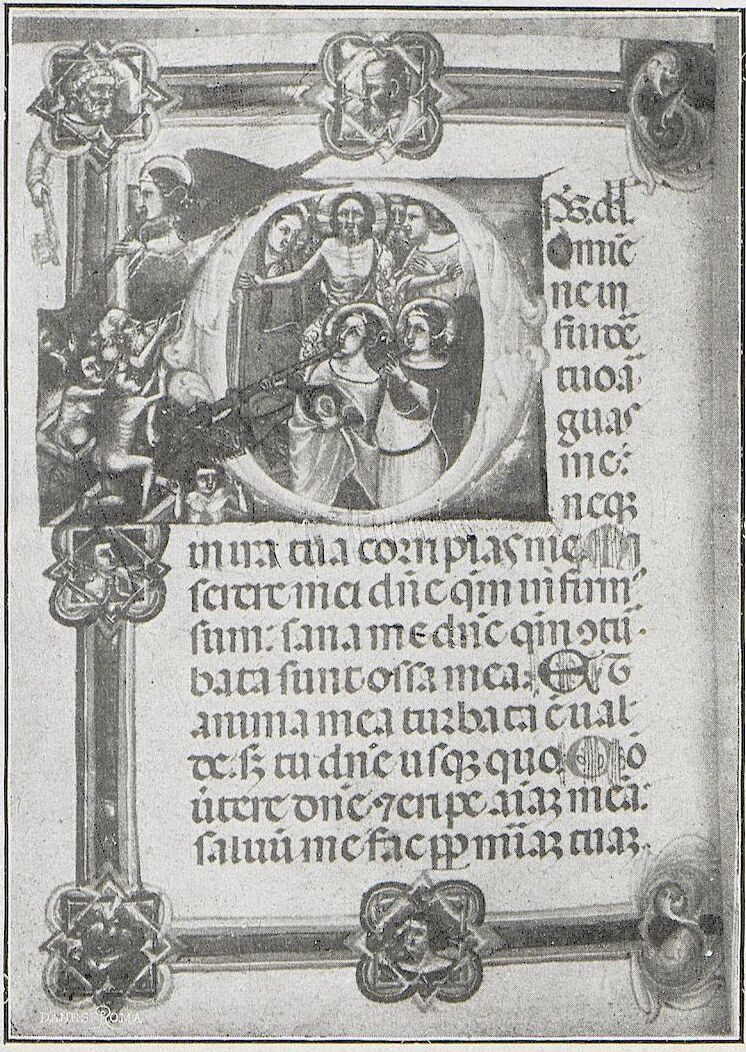 ps. dd
Omīe
ne in
furoē
tuo ar
guas
me:
neqꝫ
in ira tua corripias me Mi
serere mei dn̄e qm̄ infirmꝰ
sum: sana me dn̄e qm̄ ꝯtur
bata sunt ossa mea. Et
anima mea turbata ē ual
de: sꝫ tu dn̄e usqꝫ quo Cō
uertere dn̄e ⁊ eripe aīaꝫ meā:
saluū me fac ꝓp̄ mīaꝫ tuaꝫ.
DANESI ROMA